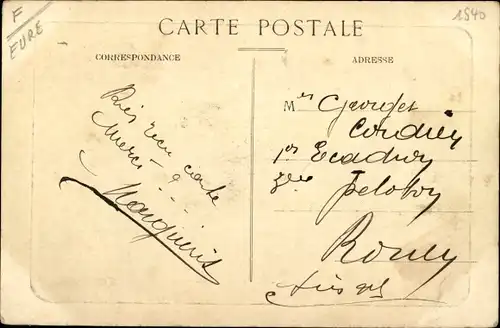 F
EURE
1540
CARTE POSTALE
CORRESPONDANCE
ADRESSE
reçu carte
Merci
Mr Georges
Cordier
1er Escadron
3ème peloton
Rouen